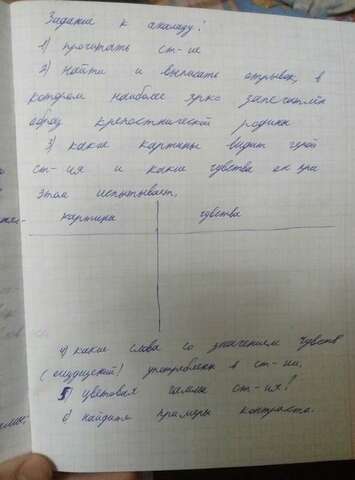 Задание к анализу!
1) прочитать ст-ие
2) найти и выписать отрывок, в
котором наиболее ярко запечатлён
образ крепостнической родины
3) какие картины видит герой
ст-ия и какие чувства он при
этом испытывает.
картина чувства
4) какие слова со значением чувств
(ощущений) употреблены в ст-ии,
5) цветовая гамма ст-ия?
6) найдите примеры контраста.